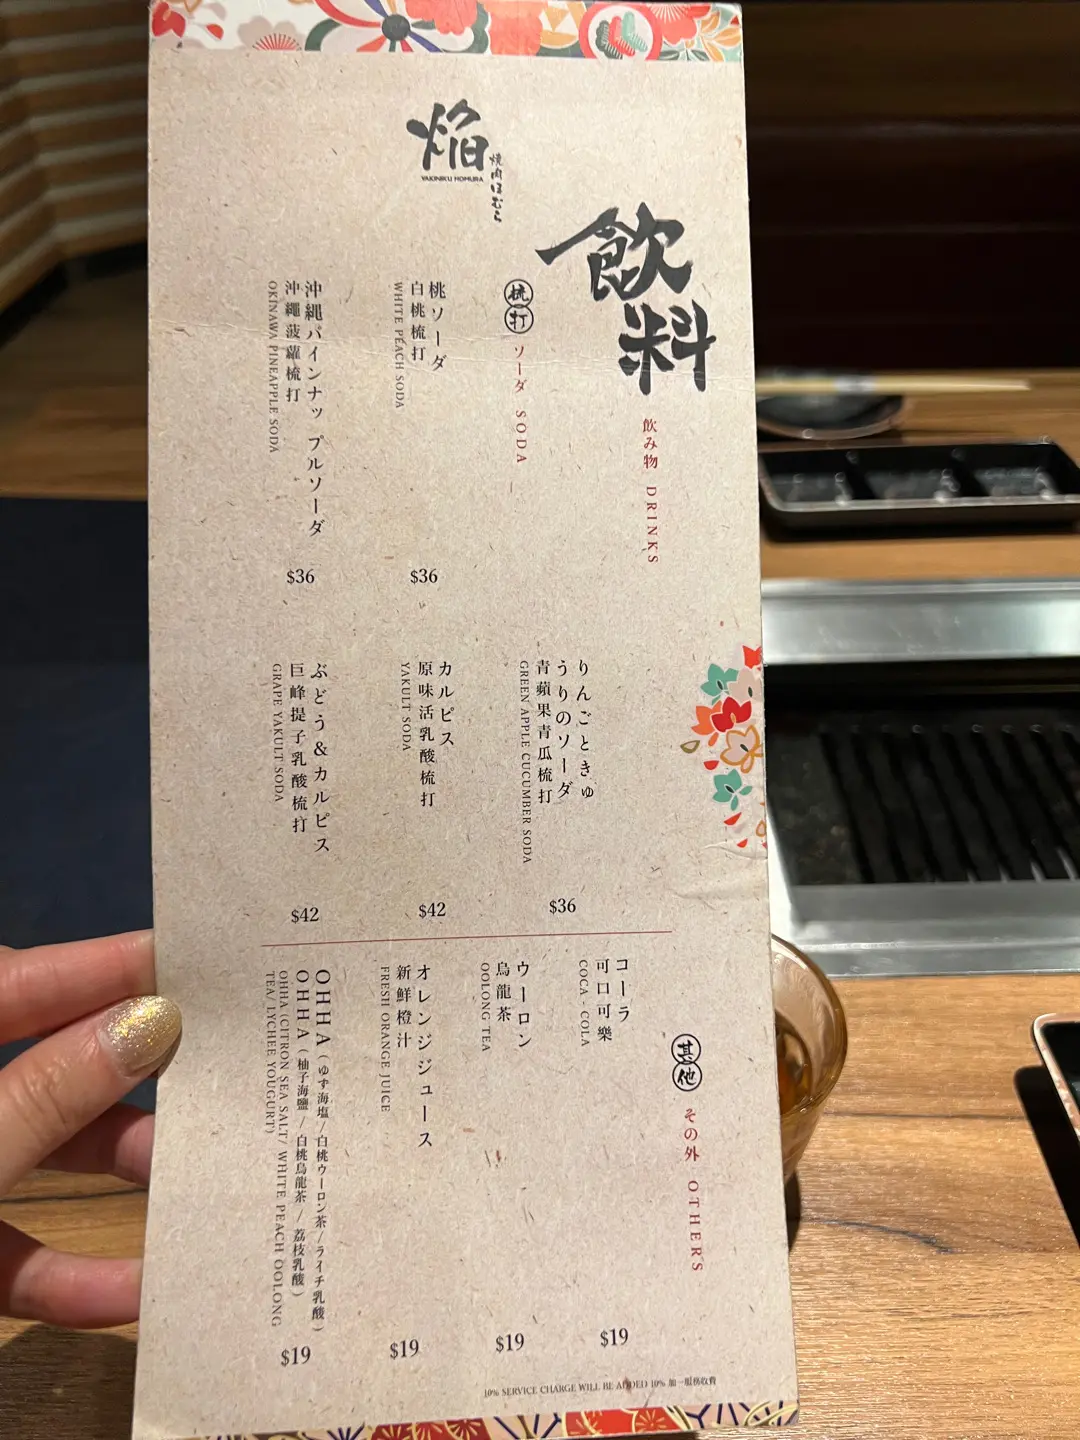 焰
YAKINIKU HOMURA
焼肉ほむら
飲料
飲み物 DRINKS
梳打 ソーダ SODA
桃ソーダ
白桃梳打
WHITE PEACH SODA
$36
沖縄パインナップルソーダ
沖繩菠蘿梳打
OKINAWA PINEAPPLE SODA
$36
りんごときゅ
うりのソーダ
青蘋果青瓜梳打
GREEN APPLE CUCUMBER SODA
$36
カルピス
原味活乳酸梳打
YAKULT SODA
$42
ぶどう&カルピス
巨峰提子乳酸梳打
GRAPE YAKULT SODA
$42
其他 その外 OTHERS
コーラ
可口可樂
COCA - COLA
$19
ウーロン
烏龍茶
OOLONG TEA
$19
オレンジジュース
新鮮橙汁
FRESH ORANGE JUICE
$19
OHHA (ゆず海塩/白桃ウーロン茶/ライチ乳酸)
OHHA (柚子海鹽 / 白桃烏龍茶 / 荔枝乳酸)
OHHA (CITRON SEA SALT/ WHITE PEACH OOLONG
TEA/ LYCHEE YOUGURT)
$19
10% SERVICE CHARGE WILL BE ADDED 10% 加一服務收費